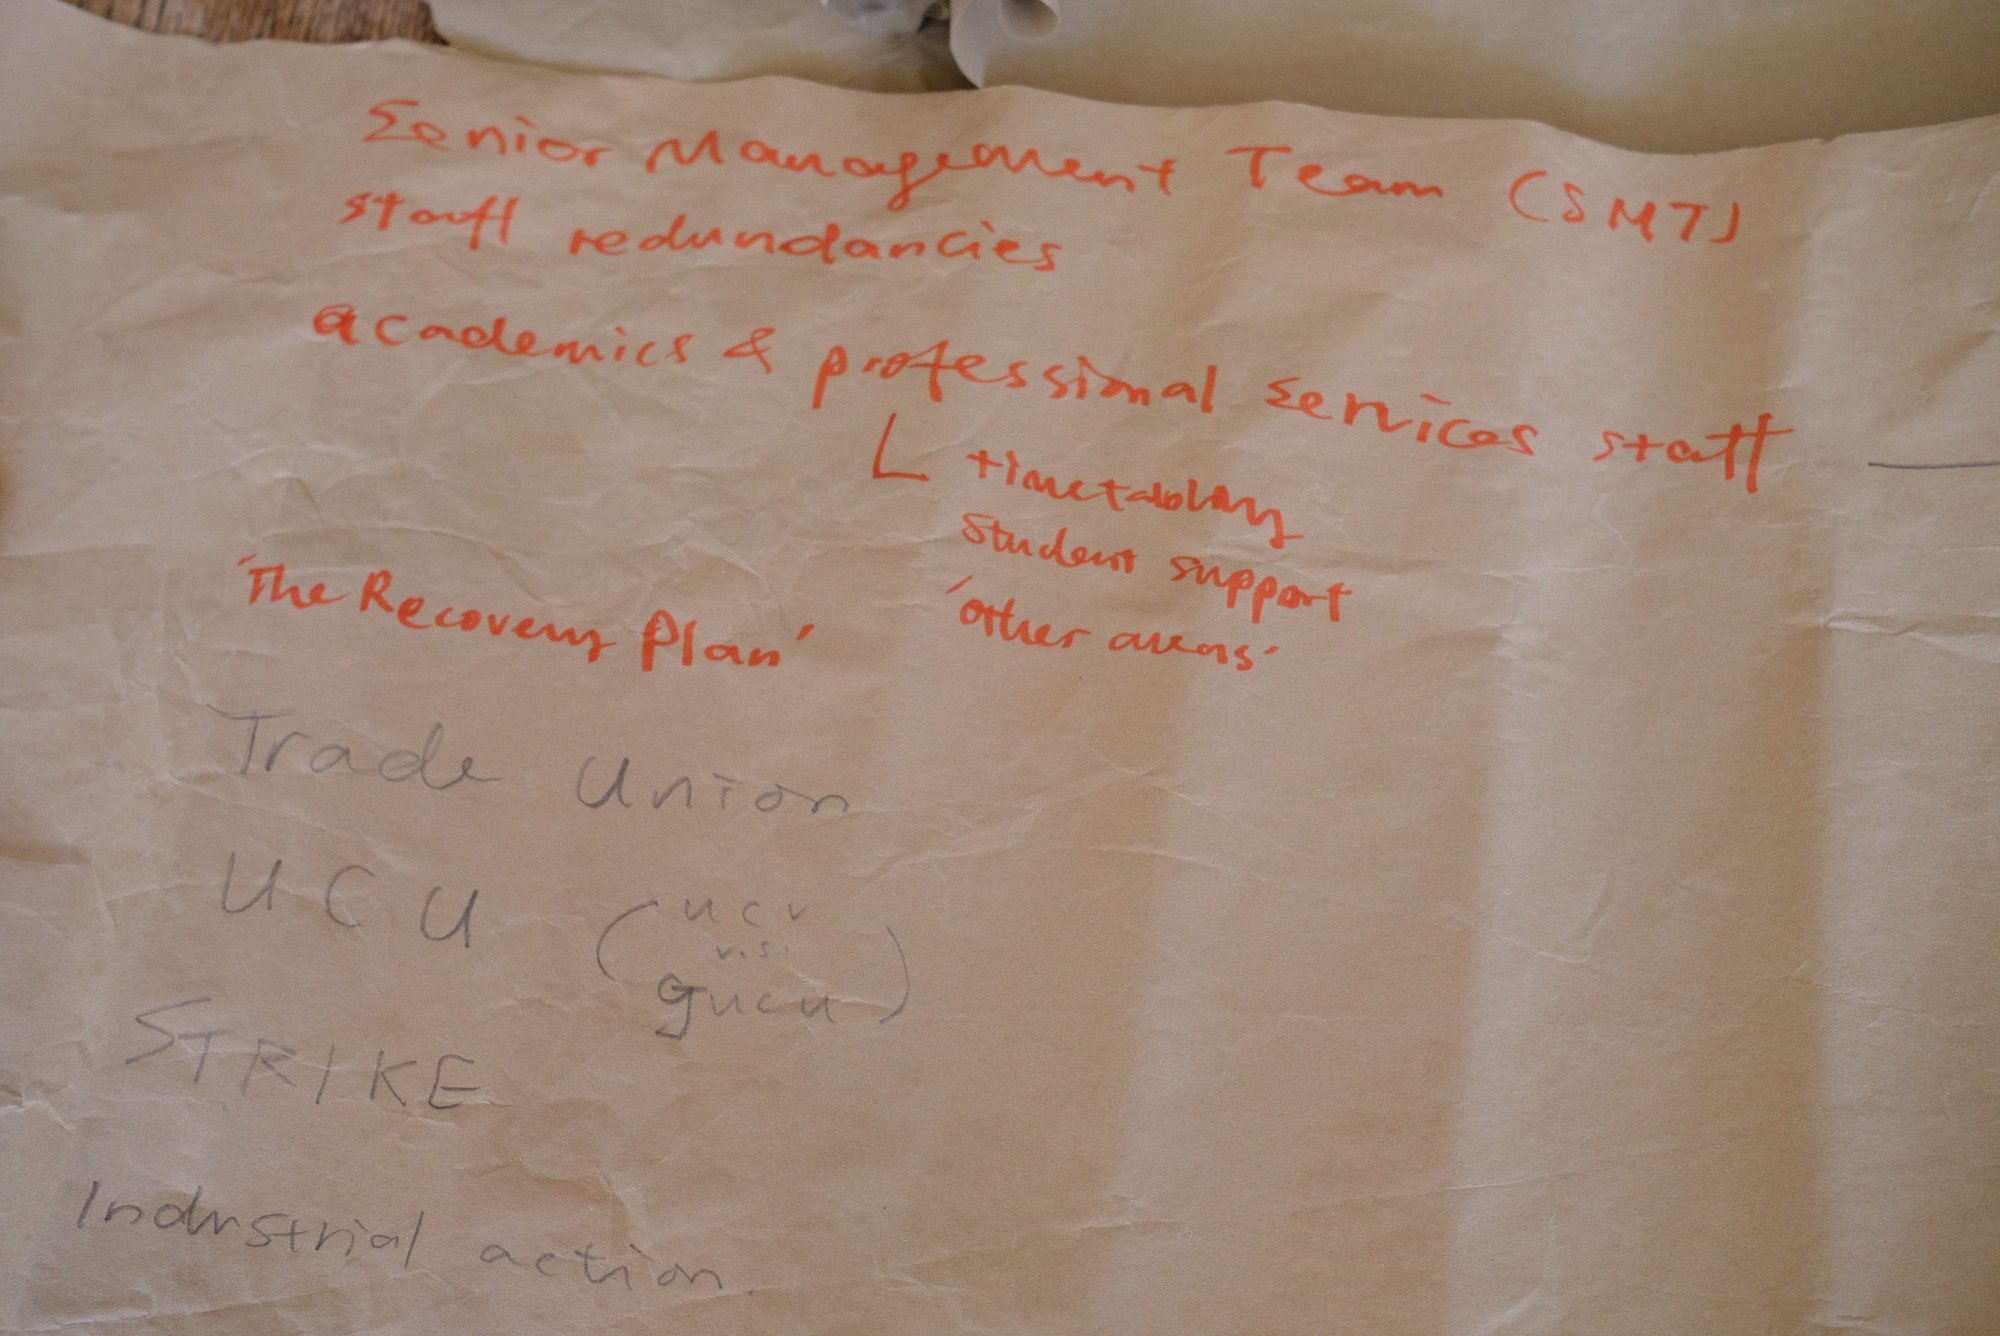 Senior Management Team (SMT)
staff redundancies
academics & professional services staff
timetabling
student support
'other areas'
'The Recovery Plan'
Trade Union
UCU (ucu
v.s.
gucu)
STRIKE
Industrial action.